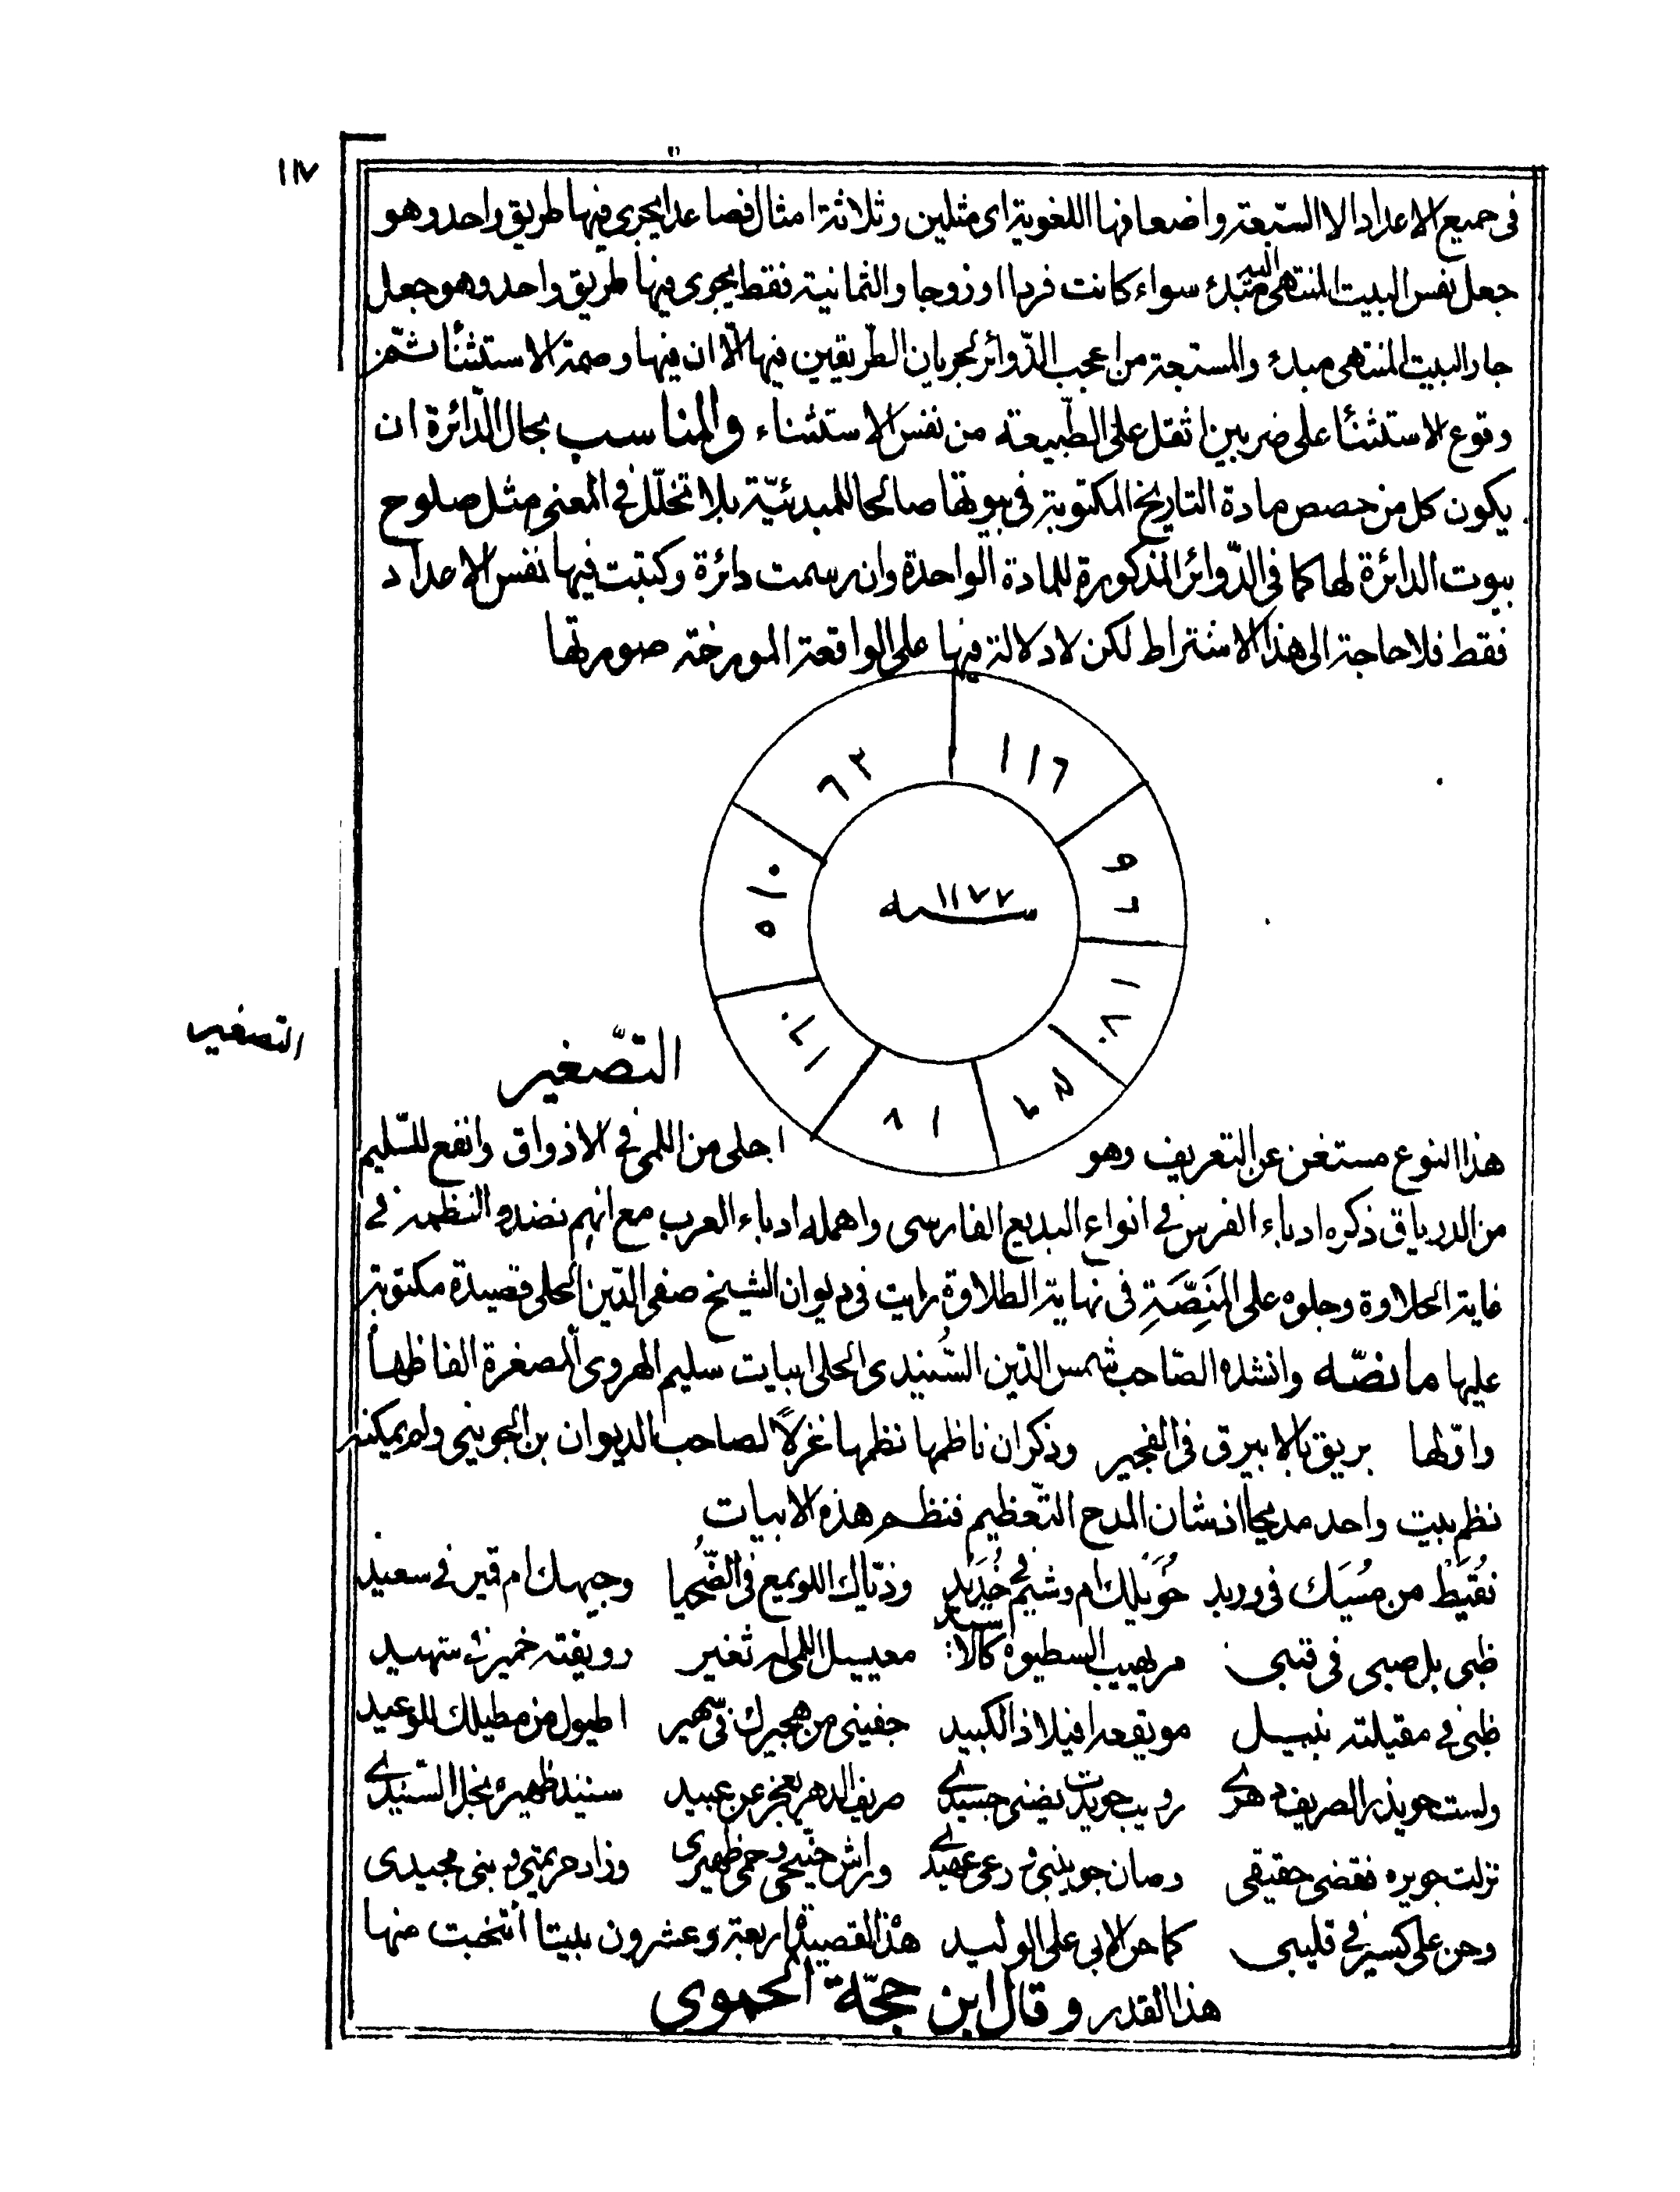 ١١٧
فى جميع الاعداد الا السّبعة واضعافها اللغوية اى مثلين وثلاثة امثال فصاعدا يجرى فيها طريق واحد وهو
جعل نفس البيت المنتهى اليه مبدء سواء كانت فردا او زوجا والثمانية فقط يجرى فيها طريق واحد وهو جعل
جار البيت المنتهى مبدء والمستبعة من اعجب الدّوائر لجريان الطّريقين فيها الّا ان فيها وصمة الاستثنأ ثمّ
وقوع الاستثنأ على ضربين اثقل على الطّبيعة من نفس الاستثناء والمناسب بحال الدّائرة ان
يكون كل من حصص مادة التاريخ المكتوبة فى بيوتها صالحا للمبدئيّة بلا تخلّل فى المعنى مثل صلوح
بيوت الدائرة لها كما فى الدّوائر المذكورة للمادة الواحدة وان رسمت دائرة وكتبت فيها نفس الاعداد
فقط فلا حاجة الى هذا الاشتراط لكن لا دلالة فيها على الواقعة المورخة صورتها
١١٦
٦٣
٥١٠
٨١
١١٧٧
سنه
التصغير
التّصغير
هذا النوع مستغن عن التعريف وهو اجلى من اللمى فى الاذواق وانفع للسّليم
من الدرياق ذكره ادباء الفرس فى انواع البديع الفارسى واهمله ادباء العرب مع انهم نضدوا النظم فى
غاية الحلاوة وجلوه على المَنِصَّةِ فى نهاية الطلاوة رايت فى ديوان الشيخ صفى الدّين الحلى قصيدة مكتوبة
عليها ما نصّه وانشده الصّاحب شمس الدّين السُّنيدى الحلى ابيات سليم الهروى المصغرة الفاظها
واوّلها بريق بالابيرق فى الفجير وذكر ان ناظمها نظمها غزلاً لصاحب الديوان بن الجوينى ولم يمكنه
نظم بيت واحد مديحا اذ شان المدح التّعظيم فنظم هذه الابيات
نُقَيط من مُسَيك فى وريد خُوَيلك ام وشيم فى خُدَيد وذيّاك اللويمع فى الضُّحيا وجيهك ام قمير فى سعيد
ظبى بل صبى فى قبى مريهيب السطيوة كالاسيد معيسيل اللمى له ثغير رويقته خمير فى شهيد
فى مقيلته نبيل مويقعه افيلاذ الكبيد جفينى من هجيرك فى سهير اطيول من مطيلك للوعيد
ولست حويذر الصريف دهرى جسيدى صريف الدهر يعجز عن عبيد سنيد ظهيره نجل السّنيدى
نزلت جويره فقضى حقيقى وصان جوينبى ورعى عهيدى وراش جنيحى وحمى ظهيرى وزاد حريمتى وبنى مجيدى
وحن على كسير فى قليبى كما حن الابى على الوليد هذه القصيدة اربعة وعشرون بيتا انتخبت منها
هذا القدر وقال ابن حجّة الحموى